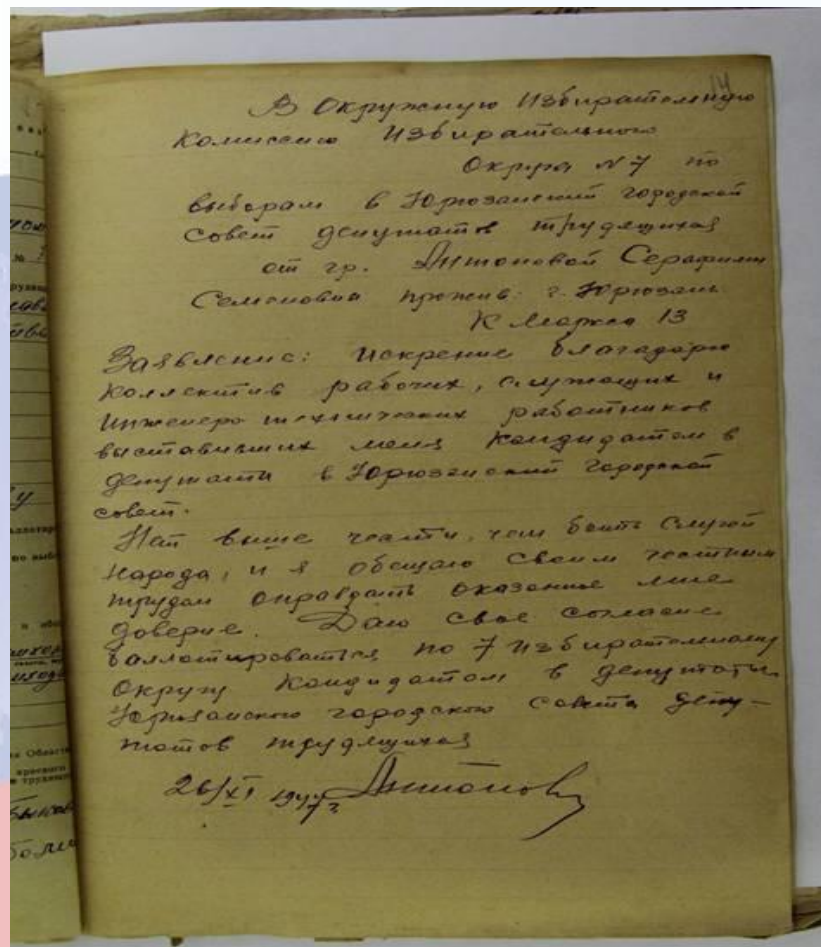 14
В Окружную Избирательную
Комиссию Избирательного
Округа №7 по
выборам в Юрюзанский городской
совет депутатов трудящихся
от гр. Антоновой Серафимы
Семеновны прожив. г. Юрюзань
К Маркса 13
Заявление: Искрение благадарю
Коллектив рабочих, служащих и
Инженеро технических работников
выставивших меня Кандидатом в
депутаты в Юрюзанский городской
совет.
Нет выше чести, чем быть слугой
народа, и я обещаю своим честным
трудом оправдать оказанное мне
доверие. Даю свое согласие
баллотироваться по 7 Избирательному
Округу Кандидатом в депутаты
Юрюзанского городского совета депу-
татов трудящихся
26/XI 1947 г. Антонова